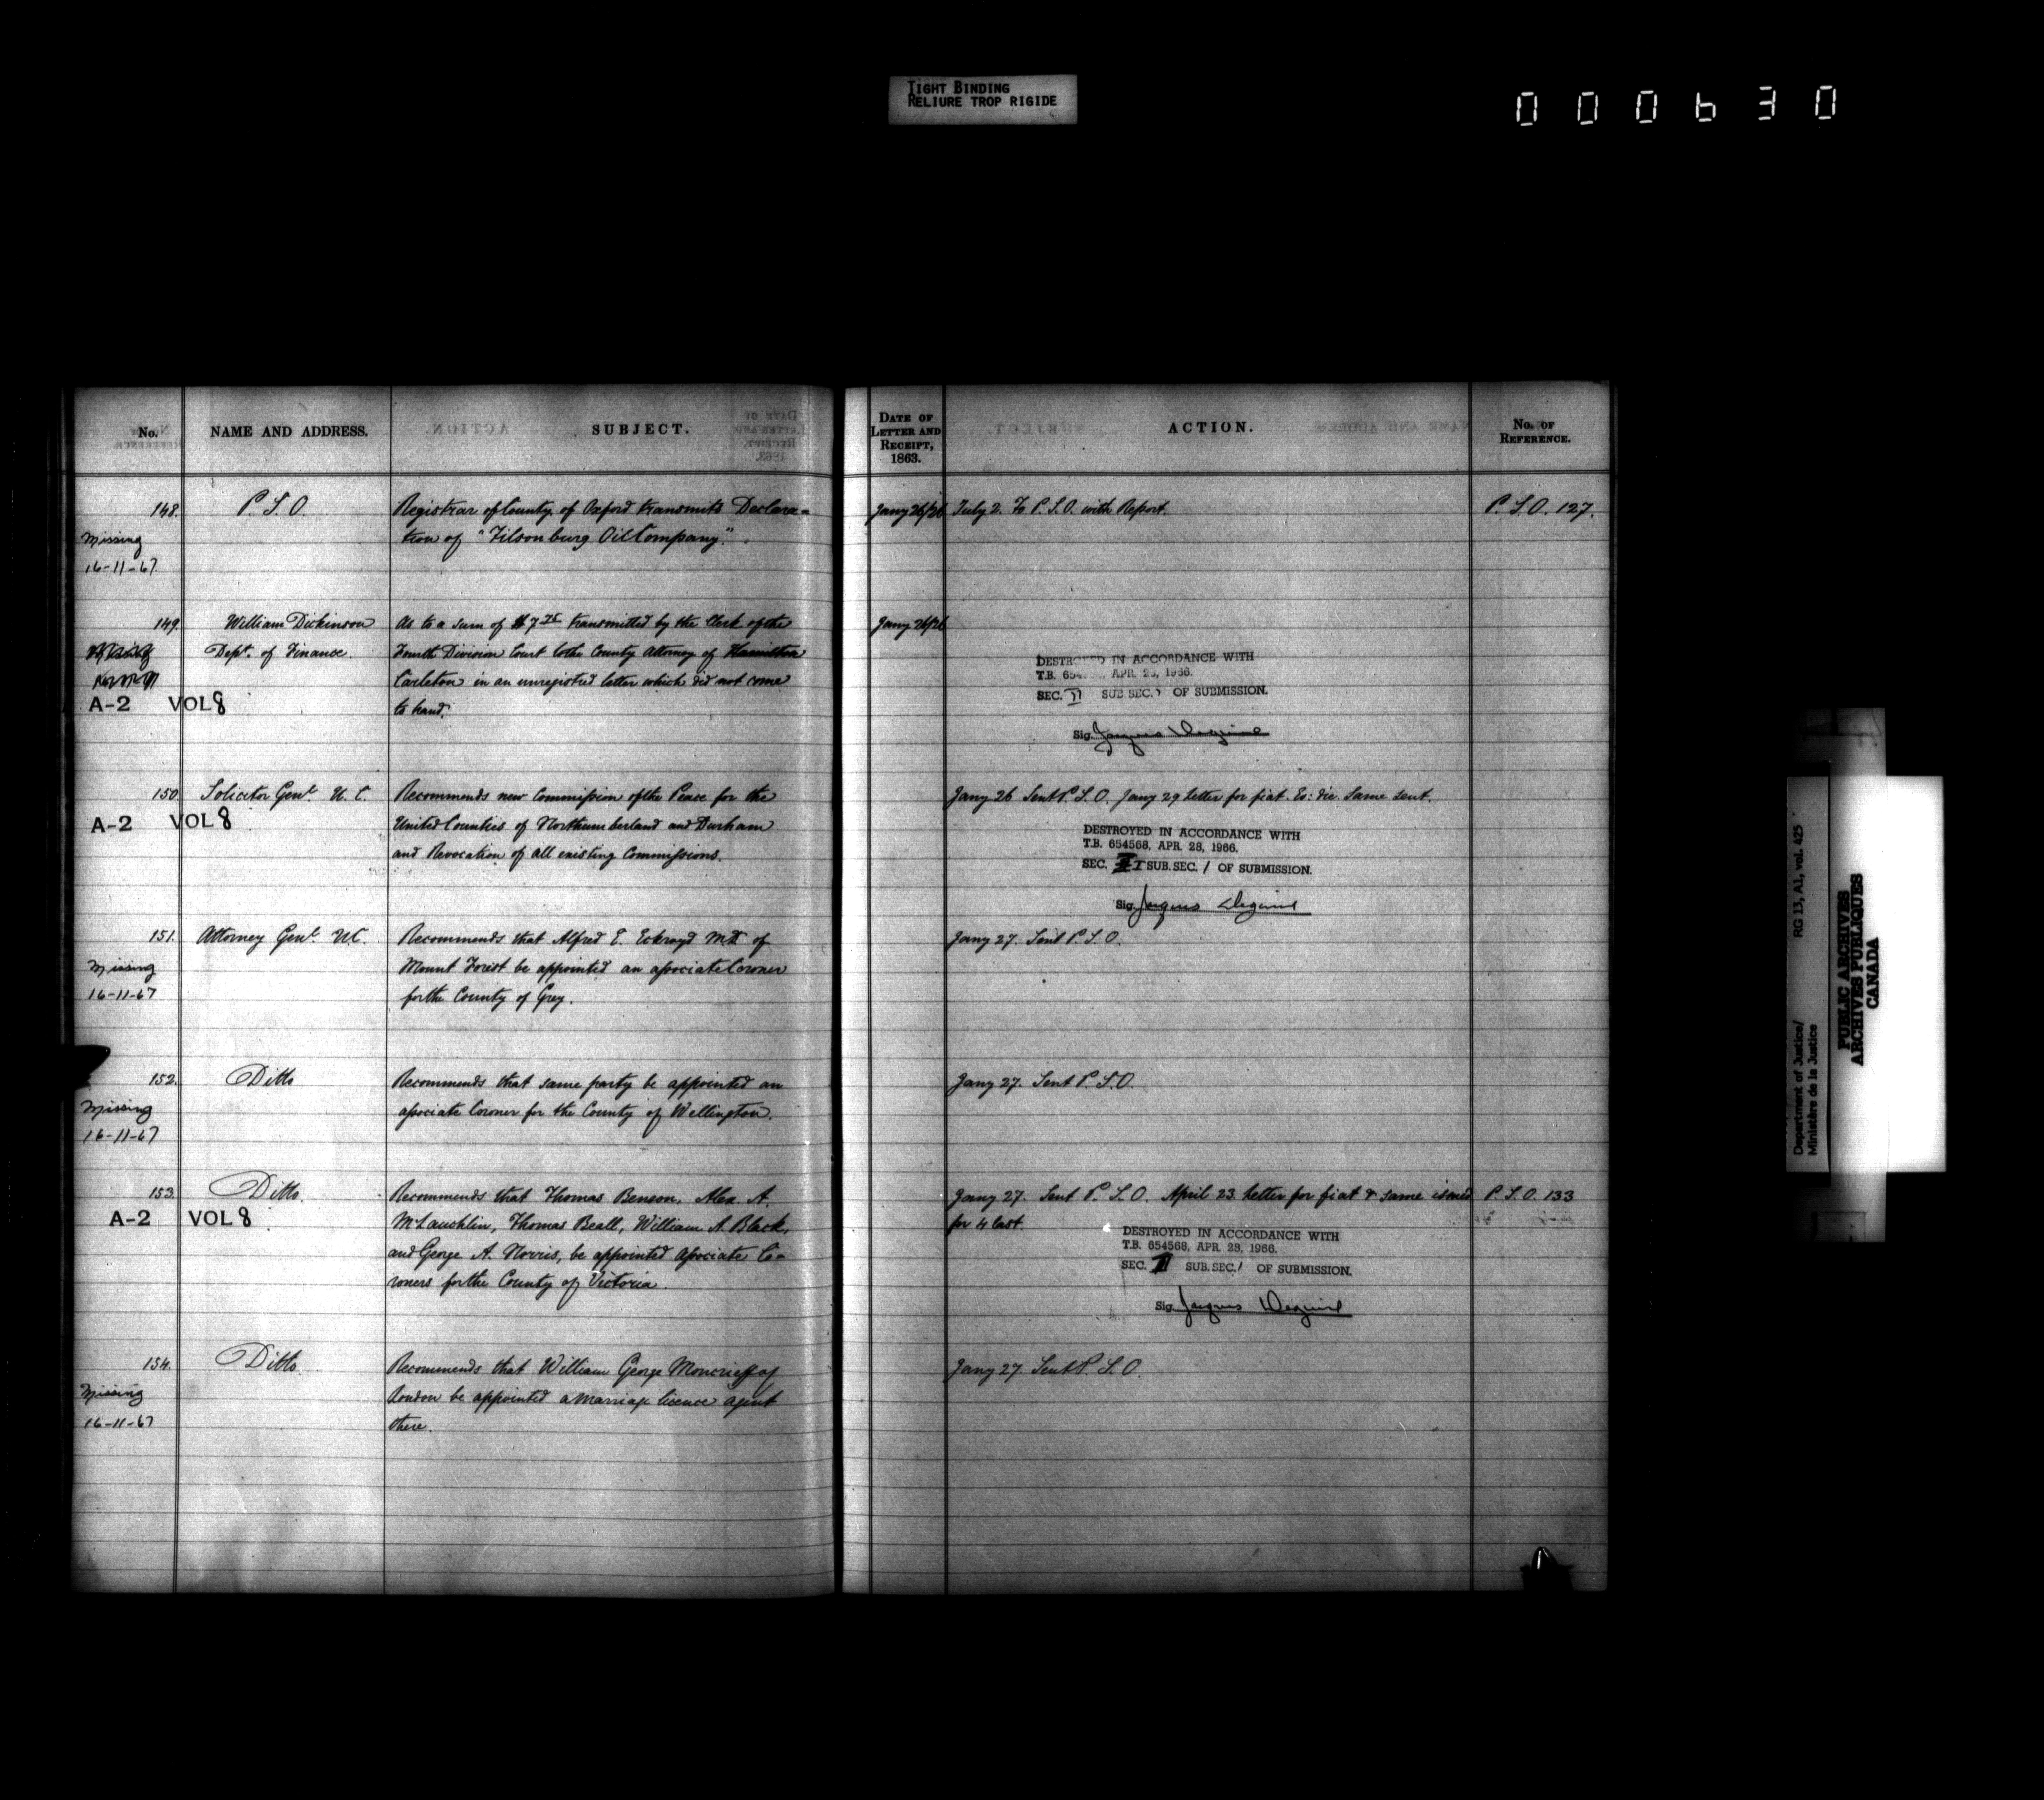 TIGHT BINDING
RELIURE TROP RIGIDE
000630
No.
NAME AND ADDRESS.
SUBJECT.
DATE OF
LETTER AND
RECEIPT,
1863.
ACTION.
No. OF
REFERENCE.
148. P. S. O. Registrar of County of Oxford transmits Declara= Jany 26/26 July 2. To P. S. O. with Report. P. S. O. 127.
Missing tion of "Tilsonburg Oil Company".
16-11-67
149. William Dickinson As to a sum of $7 transmitted by the Clerk of the Jany 26/26
Dept. of Finance. Fourth Division Court to the County Attorney of Hamilton
Carleton in an unregistred letter which did not come
A-2 VOL 8 to hand.
DESTROYED IN ACCORDANCE WITH
T.B. 654 APR. 28, 1966.
SEC. II SUB.SEC. 1 OF SUBMISSION.
Sig. Jacques
150. Solicitor Genl. U. C. Recommends new Commission of the Peace for the Jany 26 Sent P. S. O. Jany 29 Letter for fiat. Eo: die. Same sent.
A-2 VOL 8 United Counties of Northumberland and Durham
and Revocation of all existing Commissions.
DESTROYED IN ACCORDANCE WITH
T.B. 654568, APR. 28, 1966.
SEC. SUB.SEC. 1 OF SUBMISSION.
Sig. Jacques
151. Attorney Genl. U.C. Recommends that Alfred E. Eckroyd M.D. of Jany 27. Sent P. S. O.
Missing Mount Forest be appointed an associate Coroner
16-11-67 for the County of Grey.
152. Ditto Recommends that same party be appointed an Jany 27. Sent P. S. O.
Missing associate Coroner for the County of Wellington.
16-11-67
153. Ditto. Recommends that Thomas Benson, Alex. A. Jany 27. Sent P. S. O. April 23 Letter for fiat & same issued P. S. O. 133
A-2 VOL 8 McLauchlin, Thomas Beall, William A. Black, for 4 last.
and George A. Norris, be appointed Associate Co=
roners for the County of Victoria.
DESTROYED IN ACCORDANCE WITH
T.B. 654568, APR. 28, 1966.
SEC. II SUB.SEC. 1 OF SUBMISSION.
Sig. Jacques
154. Ditto. Recommends that William George Moncrieff of Jany 27 Sent P. S. O.
Missing London be appointed a marriage licence agent
16-11-67 there.
Department of Justice/ RG 13, A1, vol. 425
Ministère de la Justice
PUBLIC ARCHIVES
ARCHIVES PUBLIQUES
CANADA